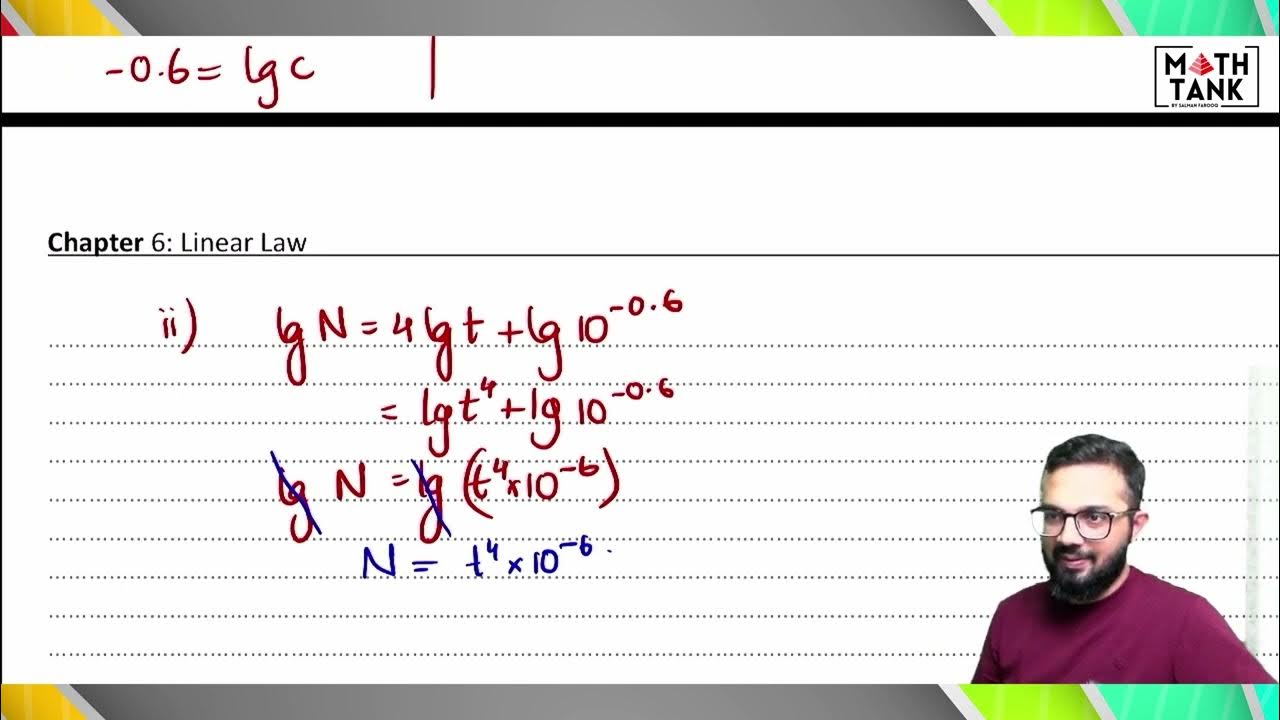 -0.6 = lg c |
MATH
TANK
BY SALMAN FAROOQ
Chapter 6: Linear Law
ii) lg N = 4 lg t + lg 10^-0.6
= lg t^4 + lg 10^-0.6
lg N = lg (t^4 × 10^-6)
N = t^4 × 10^-6.